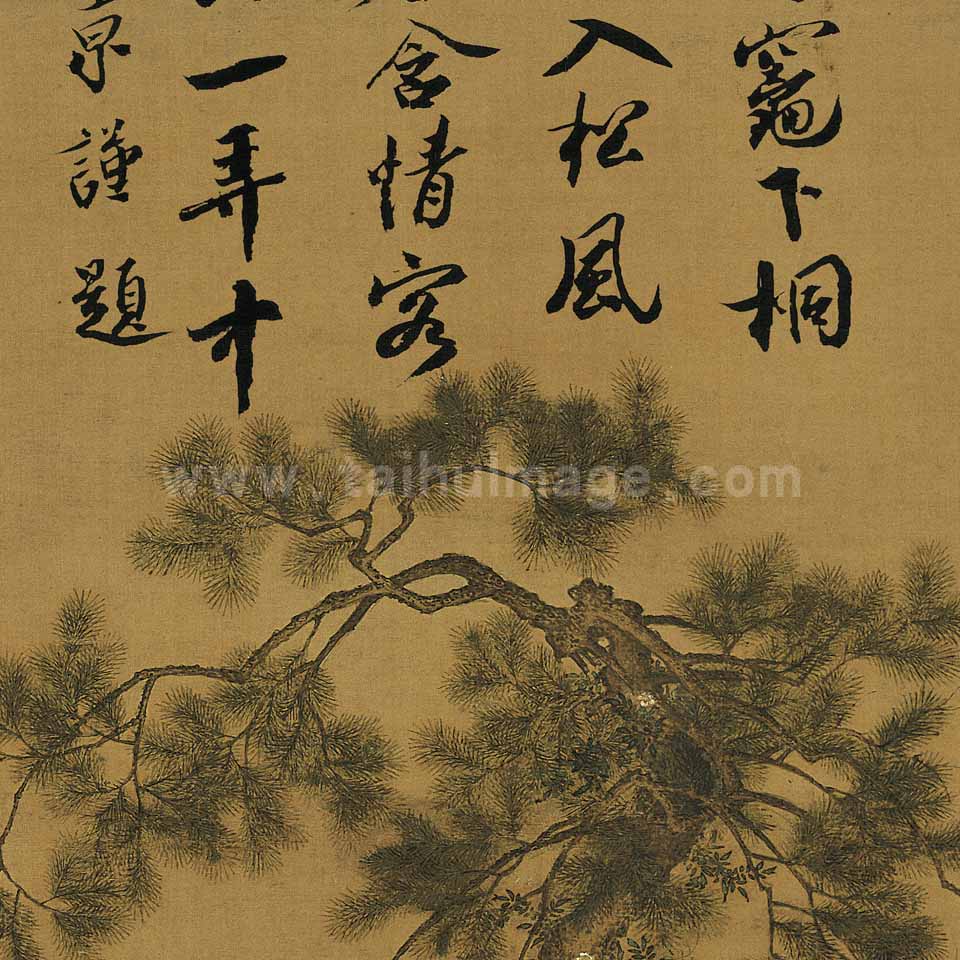 竈下桐
入松風
含情客
一弄中
京謹題
www.taihuimage.com